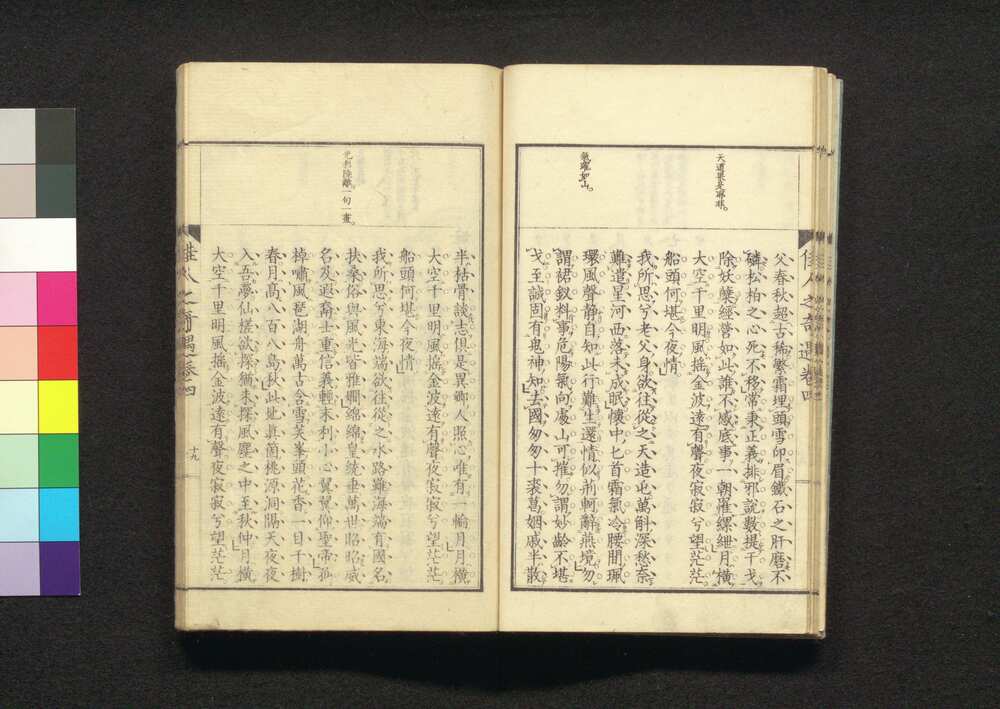 天道果是耶非。
父春秋超古稀、繁霜埋頭雪印眉、鐵石之肝磨不
磷、松柏之心死不移、常秉正義排邪說、數提干戈
除妖蘖、經營如此誰不感、底事一朝羅縲紲、月橫
大空千里明、風搖金波遠有聲、夜寂寂兮望茫茫、
船頭何堪今夜情、
我所思兮老父身、欲往從之天造屯、萬斛深愁奈
難遣、星河西落未成眠、懷中匕首霜氣冷、腰間珮
環風聲靜、自知此行難生還、情似荊軻辭燕境、勿
謂裙釵料事危、陽氣向處山可摧、勿謂妙齡不堪
戈、至誠固有鬼神知、去國匆匆十裘葛、姻戚半散
佳人之奇遇卷四
半枯骨、談志俱是異鄉人、照心唯有一輪月、月橫
大空千里明、風搖金波遠有聲、夜寂寂兮望茫茫、
船頭何堪今夜情、
我所思兮東海端、欲往從之水路難、海端有國名
扶桑、俗與風光皆雅嫺、綿綿皇統垂萬世、昭昭威
名及遐裔、士重信義輕末利、小心翼翼仰聖帝、孤
棹嘯風琵湖舟、萬古含雪芙峯頭、花香一目千樹
春、月高八百八島秋、此地眞箇桃源洞、隔天夜夜
入吾夢、仙槎欲探猶未探、風塵之中至秋仲、月橫
大空千里明、風搖金波遠有聲、夜寂寂兮望茫茫、
佳人之奇遇卷四
十九